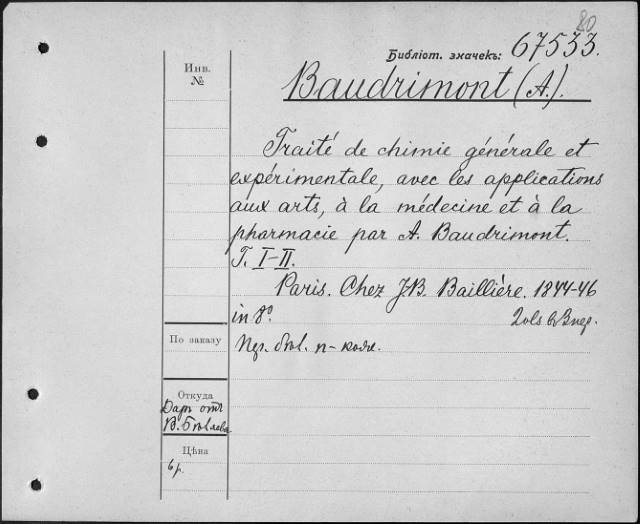 80
Библіот. значекъ: 67533.
Инв.
№
Baudrimont (A.).
Traité de chimie générale et
expérimentale, avec les applications
aux arts, à la médecine et à la
pharmacie par A. Baudrimont.
T. I-II.
Paris. Chez J.B. Baillière. 1844-46
in 8º.
2 vls
По заказу
Откуда
Даръ отъ
Цѣна
6 р.